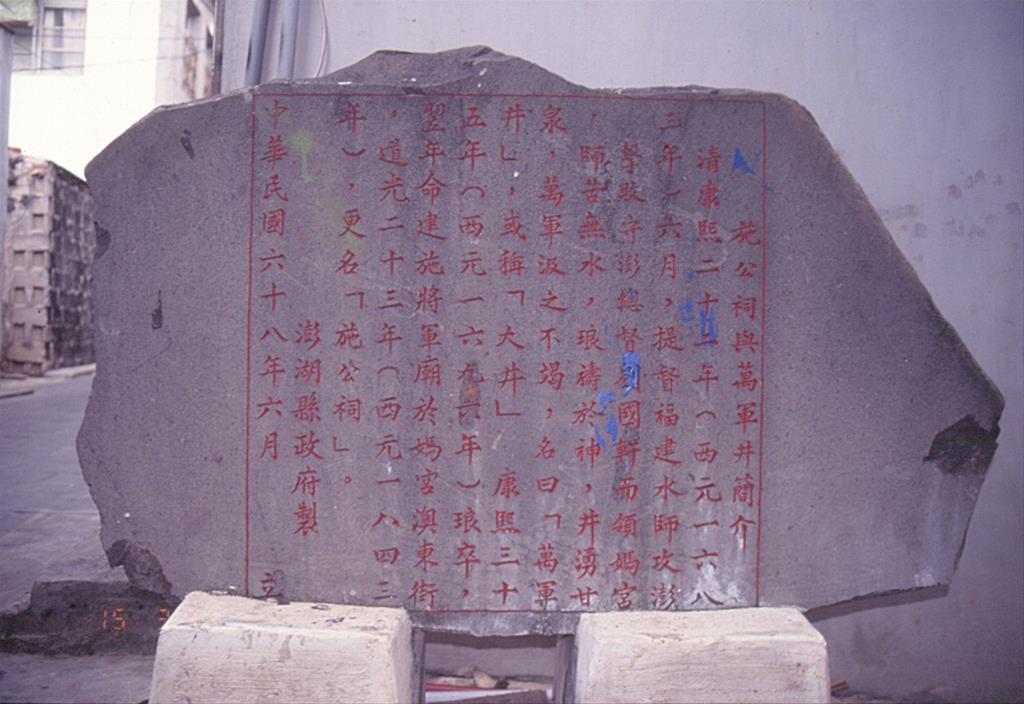 施公祠與萬軍井簡介
清康熙二十二年(西元一六八
三年)六月,提督福建水師攻澎
擊敗守澎總督劉國軒而領媽宮
,師苦無水,琅禱於神,井湧甘
泉,萬軍汲之不竭,名曰「萬軍
井」,或稱「大井」 康熙三十
五年(西元一六九六年)琅卒,
翌年命建施將軍廟於媽宮澳東街
,道光二十三年(西元一八四三
年),更名「施公祠」。
澎湖縣政府製
中華民國六十八年六月 立
15